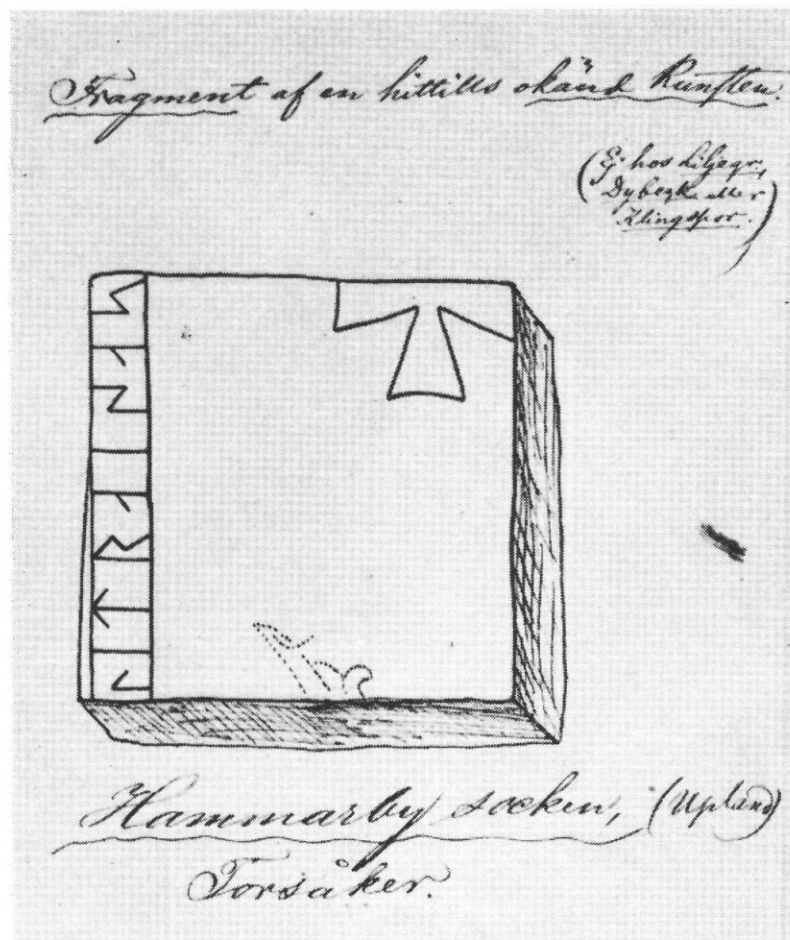 Fragment af en hittills okänd Runsten.
(Ej hos Liljegr.,
Dybeck eller
Klingspor.)
Hammarby socken, (Upland)
Torsåker.